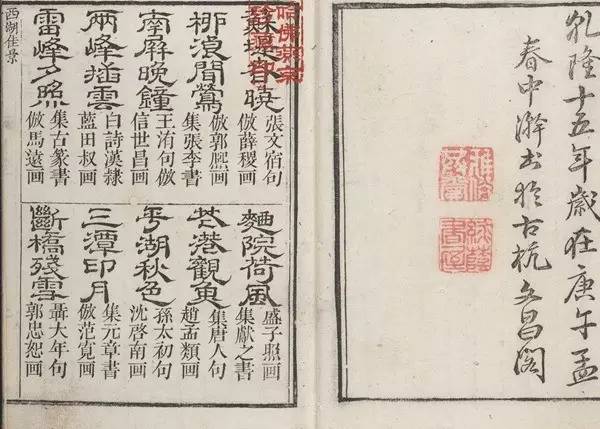 乹隆十五年歲在庚午孟
春中澣书於古杭文昌阁
蘇堤春曉
張文宿句
倣薛稷画
柳浪聞鶯
倣郭熙画
集張李書
南屏晚鐘
王洧句倣
信世昌画
兩峰插雲
白詩漢隸
藍田叔画
雷峰夕照
集古篆書
倣馬遠画
麯院荷風
盛子照画
集獻之書
花港觀魚
集唐人句
趙孟頫画
平湖秋色
孫太初句
沈啓南画
三潭印月
集元章書
倣范寛画
斷橋殘雪
聶大年句
郭忠恕画
西湖佳景